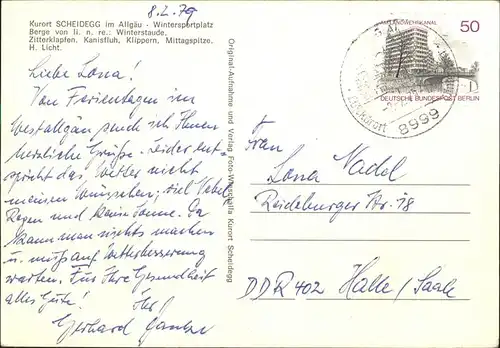 8.2.79
Kurort SCHEIDEGG im Allgäu - Wintersportplatz
Berge von li. n. re.: Winterstaude,
Zitterklapfen, Kanisfluh, Klippern, Mittagspitze,
H. Licht.
Liebe Lona!
Von Ferientagen im
Westallgäu sende ich Ihnen
herzliche Grüße. Leider ent-
spricht das Wetter nicht
meinen Wünschen; viel Nebel,
Regen und keine Sonne. Da
kann man nichts machen
u. muß auf Wetterbesserung
warten. Für Ihre Gesundheit
alles Gute!
Ihr
Gerhard
Original-Aufnahme und Verlag Foto- Kurort Scheidegg
AM LANDWEHRKANAL
50
DEUTSCHE BUNDESPOST BERLIN
Kurort
8999
Frau
Lona Nadel
Reideburger Str. 18
DDR 402 Halle / Saale